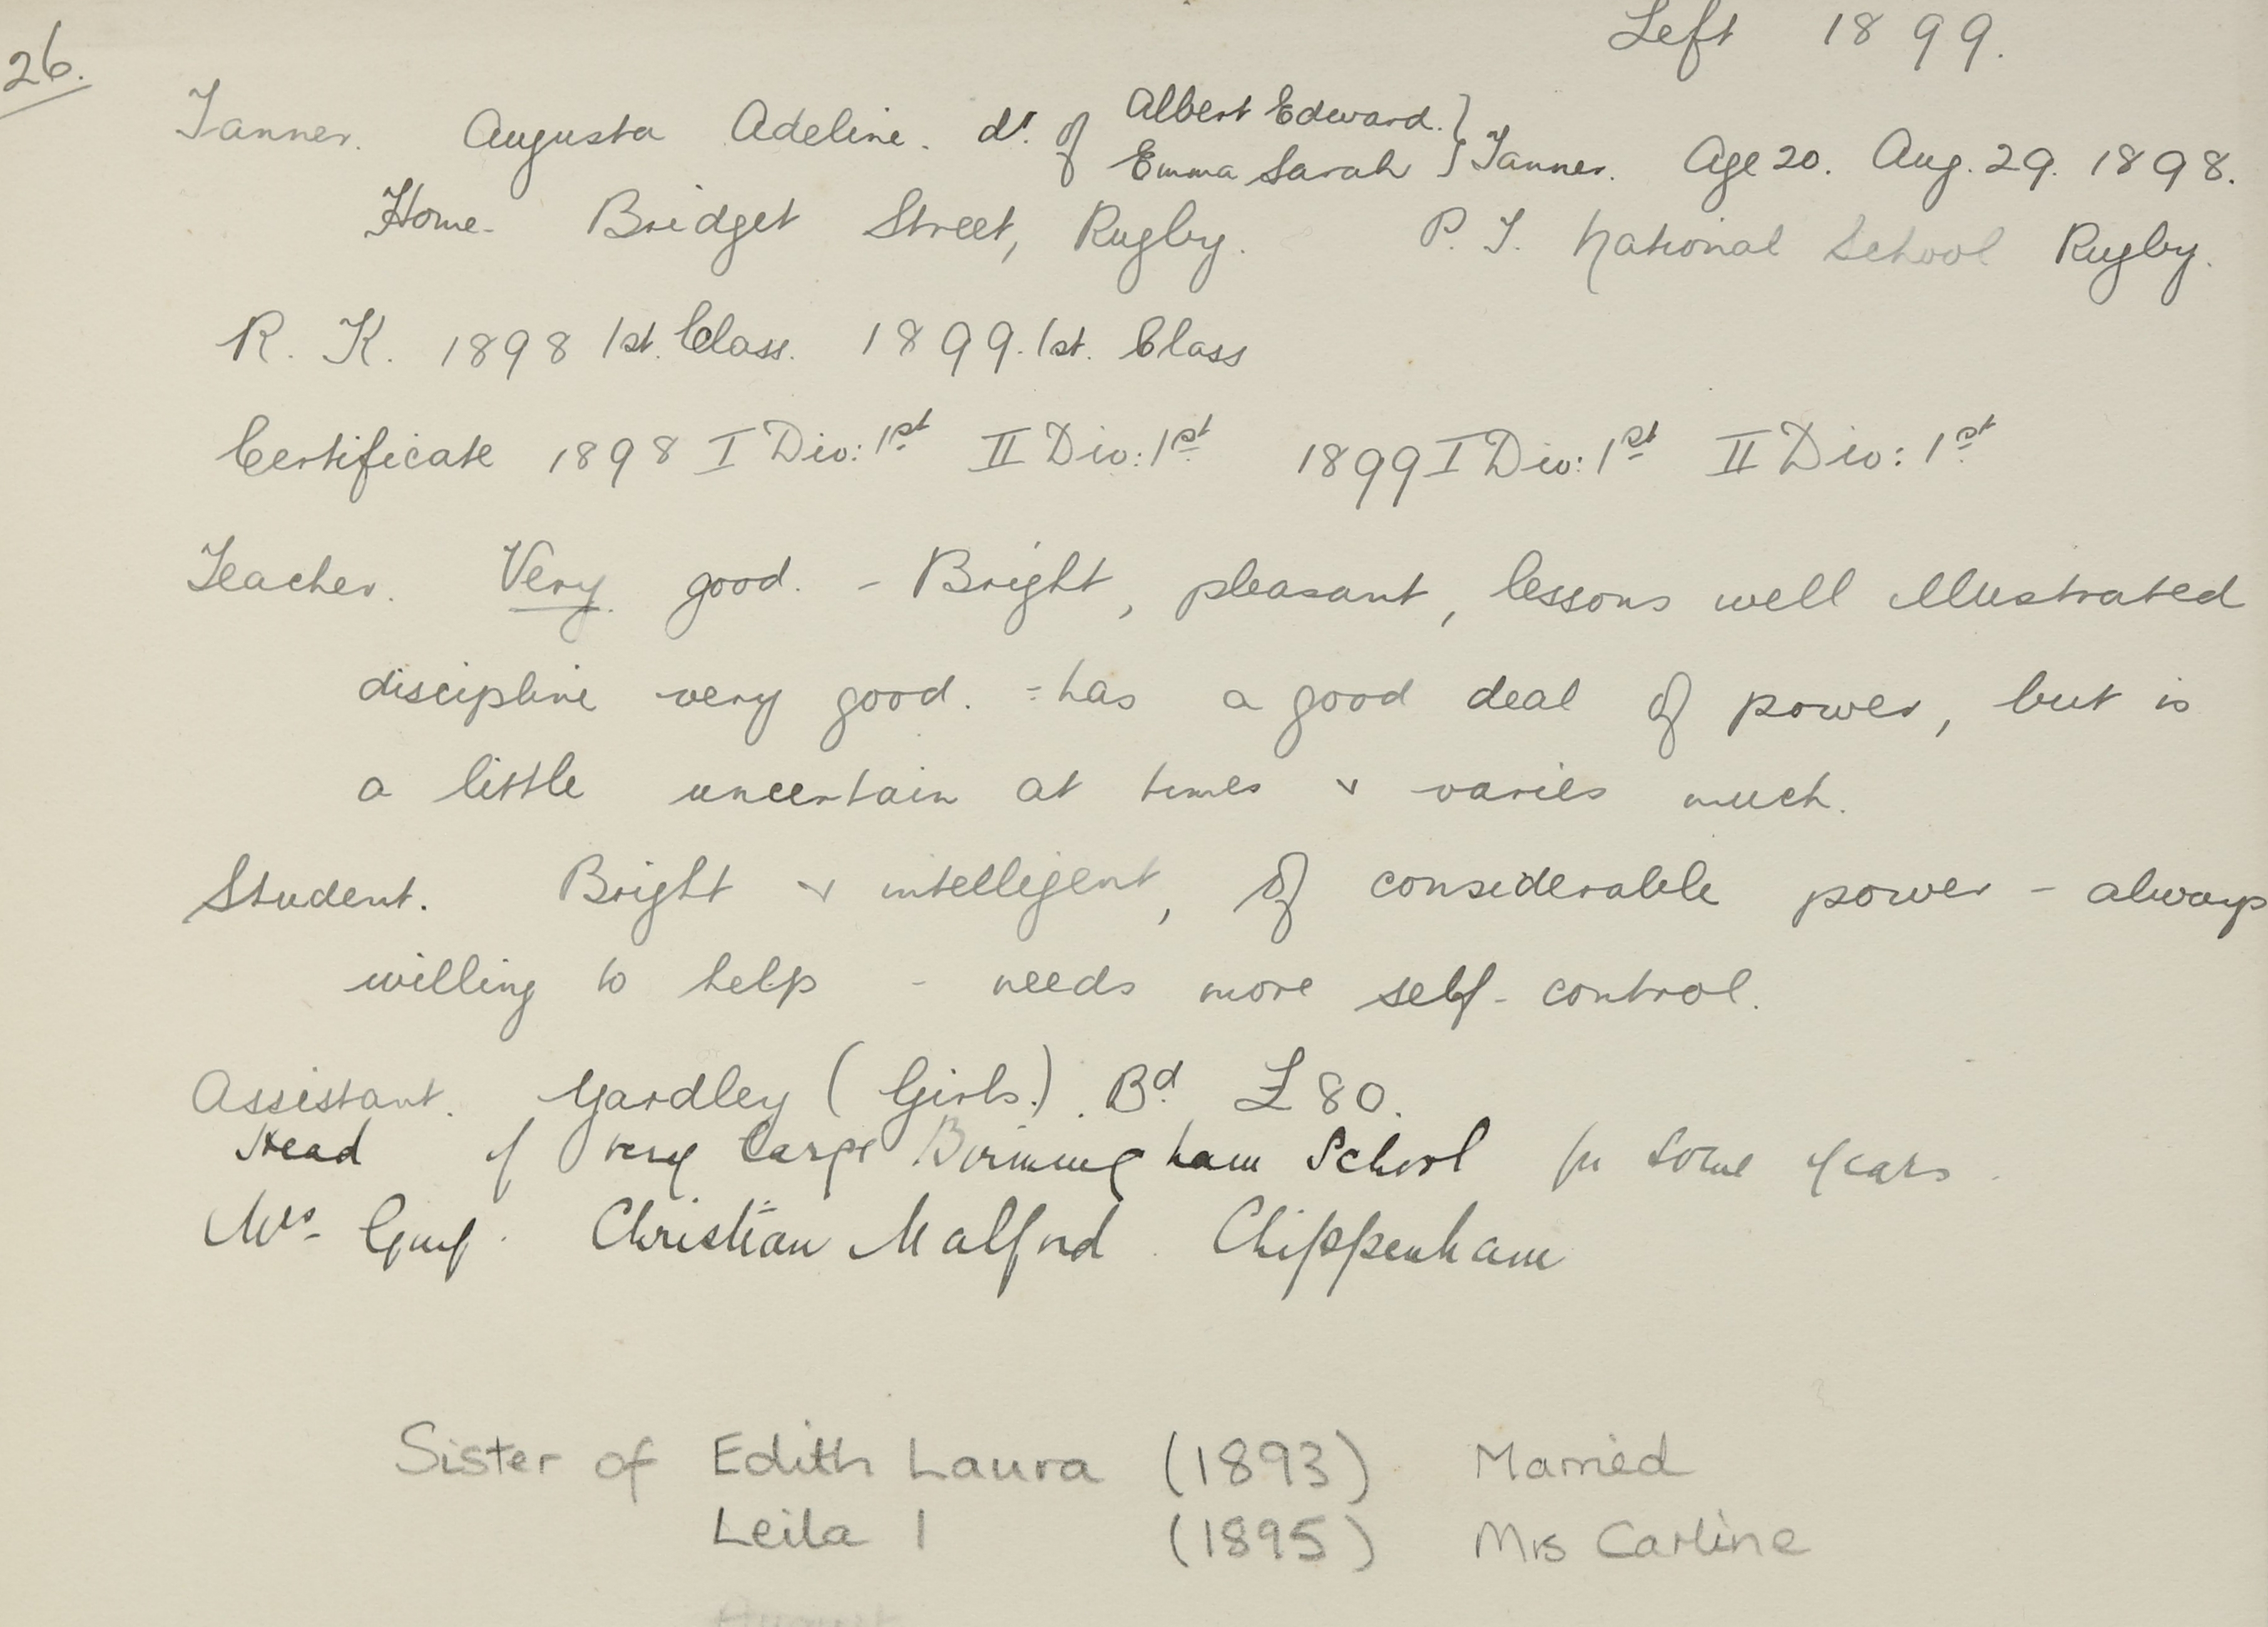 Left 1899.
26.
Tanner. Augusta Adeline. dr. of Albert Edward. } Tanner. Age 20. Aug. 29. 1898.
Emma Sarah
Home - Bridget Street, Rugby. P. T. National School Rugby.
R. K. 1898 1st. Class. 1899. 1st. Class
Certificate 1898 I Div: 1st II Div: 1st 1899 I Div: 1st II Div: 1st
Teacher. Very good. - Bright, pleasant, lessons well illustrated
discipline very good. - has a good deal of power, but is
a little uncertain at times & varies much.
Student. Bright & intelligent, of considerable power - always
willing to help - needs more self-control.
Assistant. Yardley (Girls.). Bd. £80.
Head of very large Birmingham School for some years.
Mrs - Christian Malford. Chippenham
Sister of Edith Laura (1893) Married
Leila I (1895) Mrs Carline